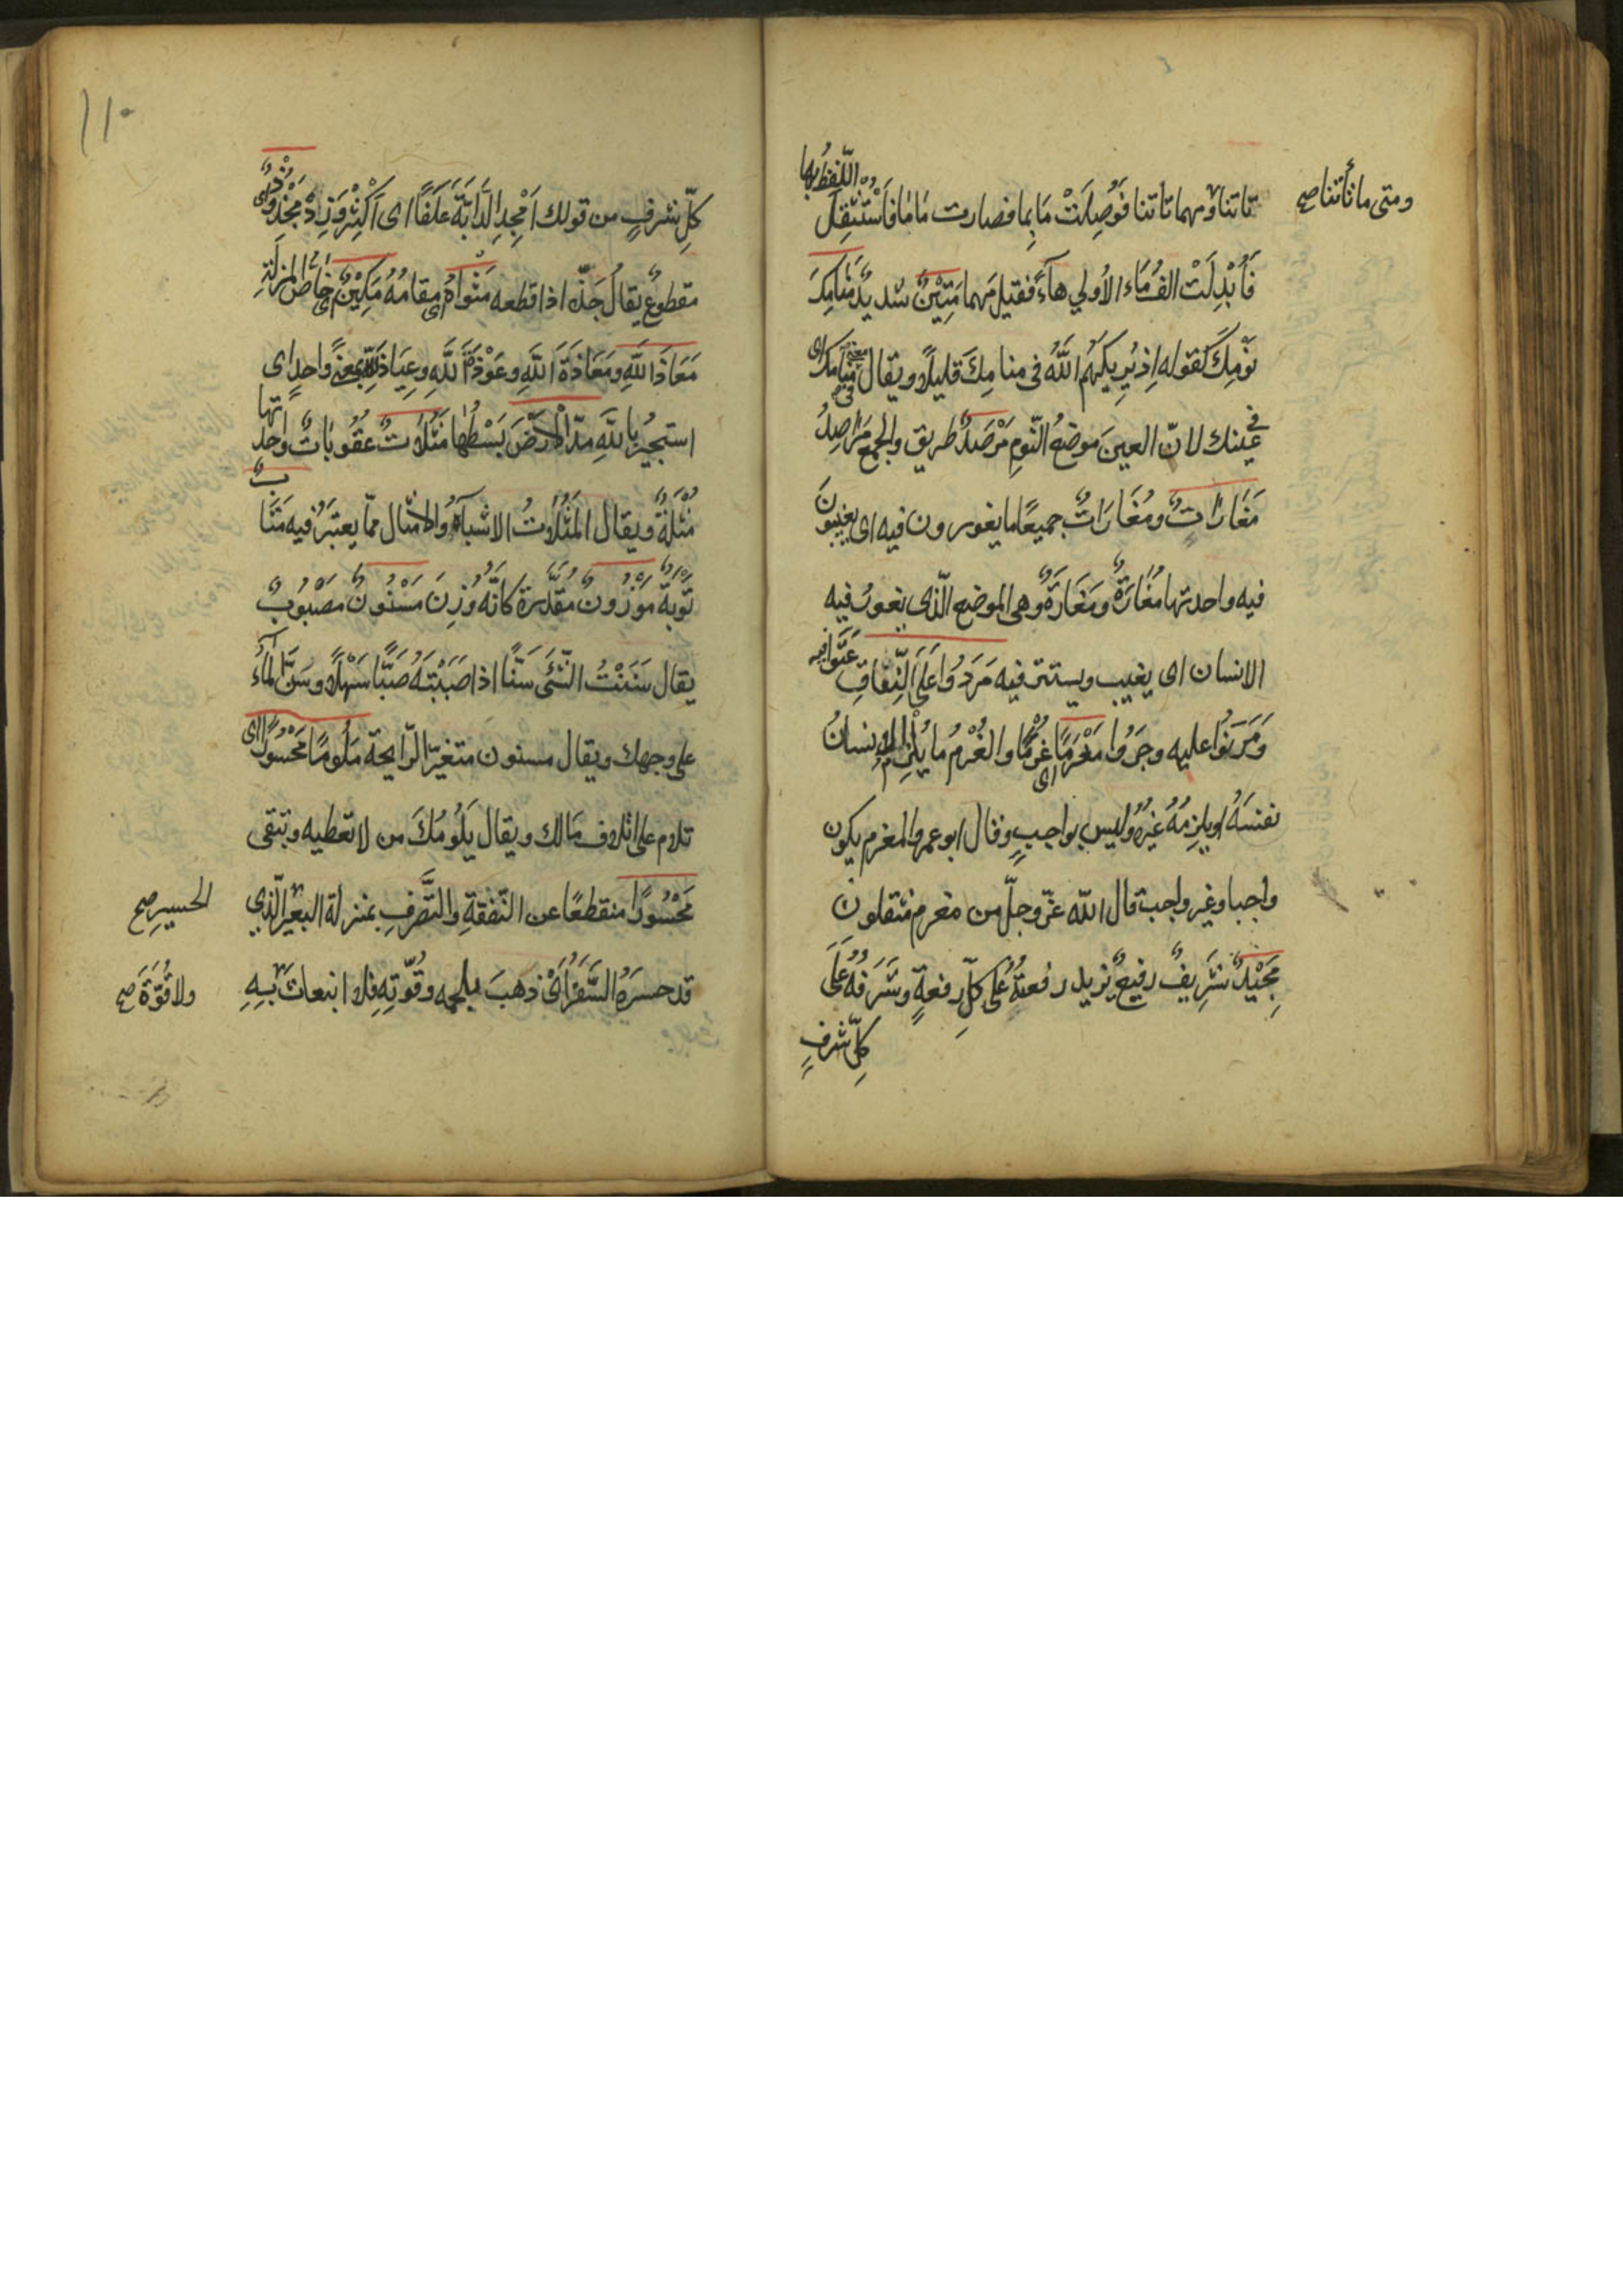 تاتنا ومهما تأتنا فَوُصِلَتْ مَا بِما فصارت مَامَا فَاسْتُثْقِلَ اللّفظُ بها
ومتى ما تأتنا صح
فَأُبْدِلَتْ الفُ مَاء الأولي هاءً فقيل مَهما مَتِيْنٌ شديدٌ مَنَامِكَ
نَوْمِكَ كقوله اِذ يُرِيكَهُم اللّٰهُ فى منامِكَ قليلًا ويقال منامك اى
فى عينك لانّ العينَ موضعُ النّومِ مَرْصَدٌ طريق والجمع مَرَاصِدُ
مَغَارَاتٍ ومُغَارَاتٌ جميعًا ما يغورون فيه اى يغيبون
فيه واحدتها مُغَارَةٌ ومَغَارَةٌ وهى الموضع الّذى يغورُ فيه
الانسان اى يغيب ويستتر فيه مَرَدُوا عَلَى النِّفَاقِ عَتَوْا فيه
وَمَرَنُوا عليه وجَرَوُا مَغْرَمًا اى غُرْمًا والغُرْمُ ما يُلْزِمُ الانسانُ
نفسَهُ او يلزمُهُ غيرُه وليس بواجبٍ وقال ابو عمر والمغرم يكون
واجبا وغير واجب قال اللّه عزّ وجلّ من مغرم مثقلون
مَجِيْدٌ شَرِيفٌ رفيعٌ يزيد رفعتُهُ على كلّ رفعةٍ وشَرَفُهُ عَلَى
كلّ شرفٍ
١١٠
كلّ شرفٍ من قولك اَمْجِدِ الدَّابَّةَ عَلَفًا اى اَكْثِرْ وَزِدْ مَجْذُوذٌ اى
مقطوعٌ يقالُ جَذّه اذا قطعه مَثْوَاهُ اى مقامُهُ مَكِيْنٌ اى خاصُّ المنزلةِ
مَعَاذَ اللّٰهِ ومَعَاذَةَ اللّٰهِ وعَوْذَةَ اللّٰهِ وعِيَاذَ اللّٰهِ بمعنًى واحدٍ اى
استجيُر باللّٰهِ مدّ الأرْضَ بَسَطَهَا مَثُلَاتٌ عقُوباتٌ واحدتها
مَثُلَةٌ ويقال المَثُلَاتُ الاشباهُ والامثال ممّا يعتبَرُ فيه مَتَابٌ
تَوْبَةٌ مَوْزُونٌ مُقَدَّرة كانّه وُزِنَ مَسْنُونٌ مَصْبُوبٌ
يقال سَنَنْتُ الشّئَ سَنًّا اذا صَبَبْتَهُ صَبًّا سَهْلًا وسَنَّ الماءُ
على وجهك ويقال مسنون متغيّر الرّايحة مَلُومًا مَحْسُورًا اى
تلام على اتلاف مَالك ويقال يَلُومُكَ من لا تعطيه وتبقى
مَحْسُورًا منقطعًا عن النّفقةِ والتَّصَرُّفِ بمنزلة البعير الّذي
الحسير صح
قد حسرَهُ السَّفَرُ اَىْ ذهَبَ بلحمه وقُوّتِهِ فلا انبعاثَ بِهِ
ولا قُوّةَ صح